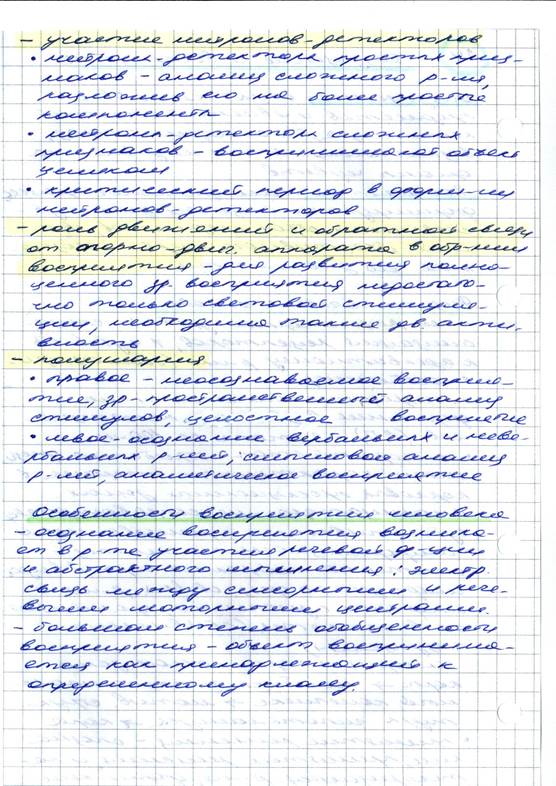 - участие нейронов-детекторов
• нейроны-детекторы простых приз-
наков - анализ сложного р-ля,
разложив его на более простые
компоненты
• нейроны-детекторы сложных
признаков - воспринимают объект
целиком
• критический период в форм-ии
нейронов-детекторов
- роль движений и обратной связи
от опорно-двиг. аппарата в обр-нии
восприятия - для развития полно-
ценного зр. восприятия недостато-
чно только световой стимуля-
ции, необходима также дв. акти-
вность
- полушария
• правое - неосознаваемое восприя-
тие, зр-пространственный анализ
стимулов, целостное восприятие
• левое - осознание вербальных и неве-
рбальных р-лей, смысловой анализ
р-лей, аналитическое восприятие
Особенности восприятия человека
- осознание восприятия возника-
ет в р-те участия речевой ф-ции
и абстрактного мышления: электр.
связь между сенсорными и рече-
выми моторными центрами.
- большая степень обобщенности
восприятия - объект воспринима-
ется как принадлежащий к
определенному классу.